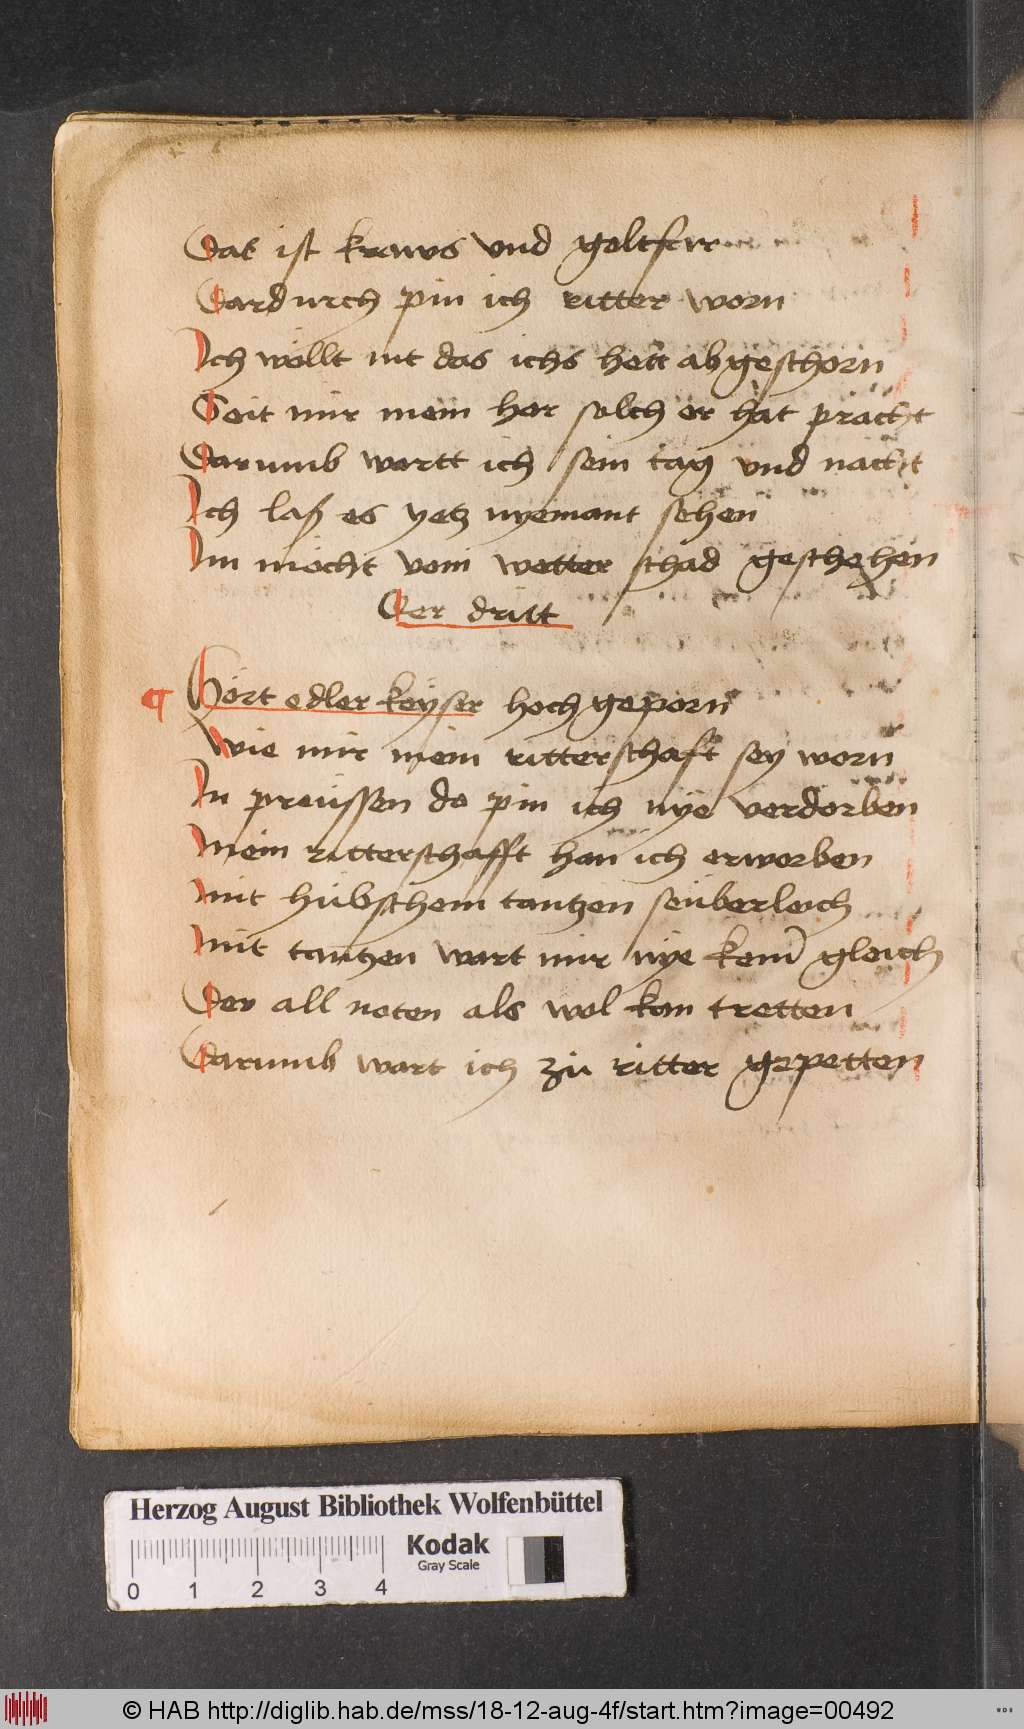 Dat ist kraws vnd goltferr
Dardurch pin ich ritter worn
Ich wöllt nit das ichs hett abgeschorn
Seit mir mein hor solch er hat pracht
Darumb wartt ich sein tag vnd nacht
Ich laß es yetz nyemant sehen
Im möcht vom wetter schad geschehen
Der dritt
¶ Hört edler keyser hochgeporn
Wie mir mein ritterschaft sey worn
In preüssen do pin ich nye verdorben
Mein ritterschafft han ich erworben
Mit hübschem tantzen seüberleich
Mit tantzen wart mir nye kein gleich
Der all noten als wol kan tretten
Darumb wart ich zü ritter gepetten
Herzog August Bibliothek Wolfenbüttel
Kodak
Gray Scale
0 1 2 3 4
© HAB http://diglib.hab.de/mss/18-12-aug-4f/start.htm?image=00492